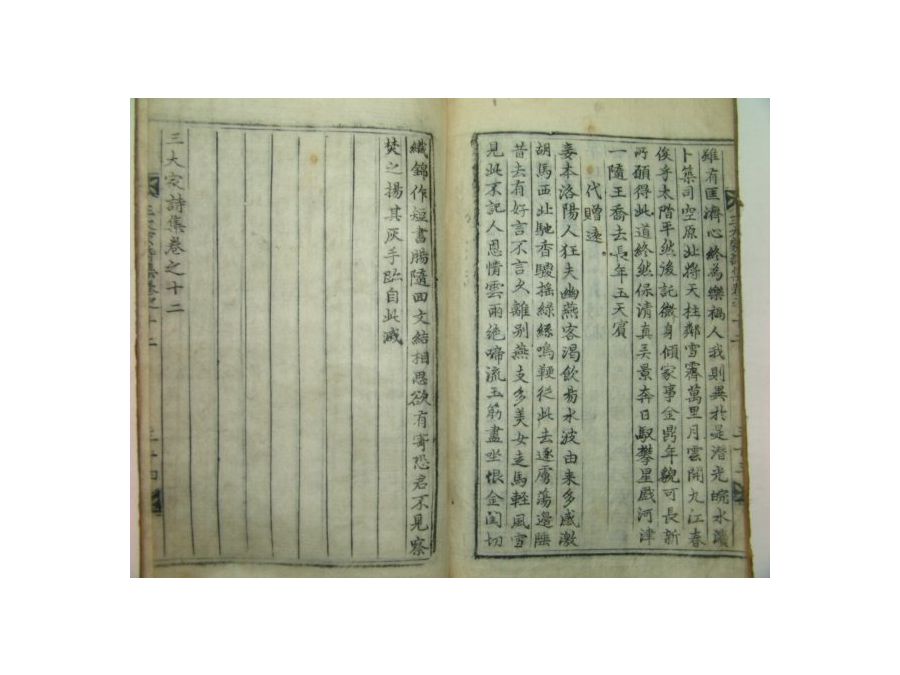 雖有匡濟心終為樂禍人我則異於是潛光皖水濱
卜築司空原北將天柱鄰雪霽萬里月雲開九江春
俟乎太階平然後託微身傾家事金鼎年貌可長新
所願得此道終然保清真弄景奔日馭攀星戲河津
一隨王喬去長年玉天賓
代贈遠
妾本洛陽人狂夫幽燕客渴飲易水波由来多感激
胡馬西北馳香騣搖綠絲鳴鞭從此去逐虜蕩邊陲
昔去有好言不言久離別燕支多美女走馬軽風雪
見此不記人恩情雲雨絶啼流玉筯盡坐恨金閨切
織錦作短書腸隨回文結相思欲有寄恐君不見察
焚之揚其灰手跡自此滅
三大家詩集卷之十二
三大家詩集卷之十二
三十四